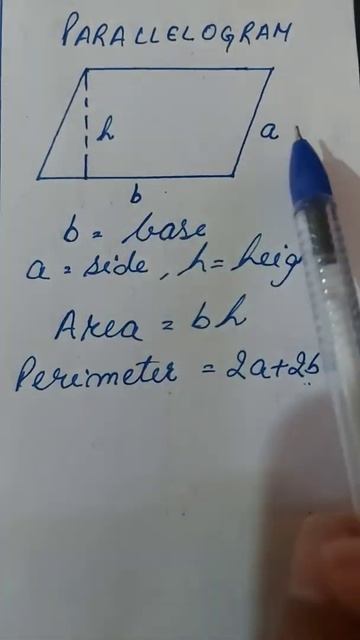 PARALLELOGRAM
h
a
b
b = base
a = side, h = heig
Area = bh
Perimeter = 2a+2b